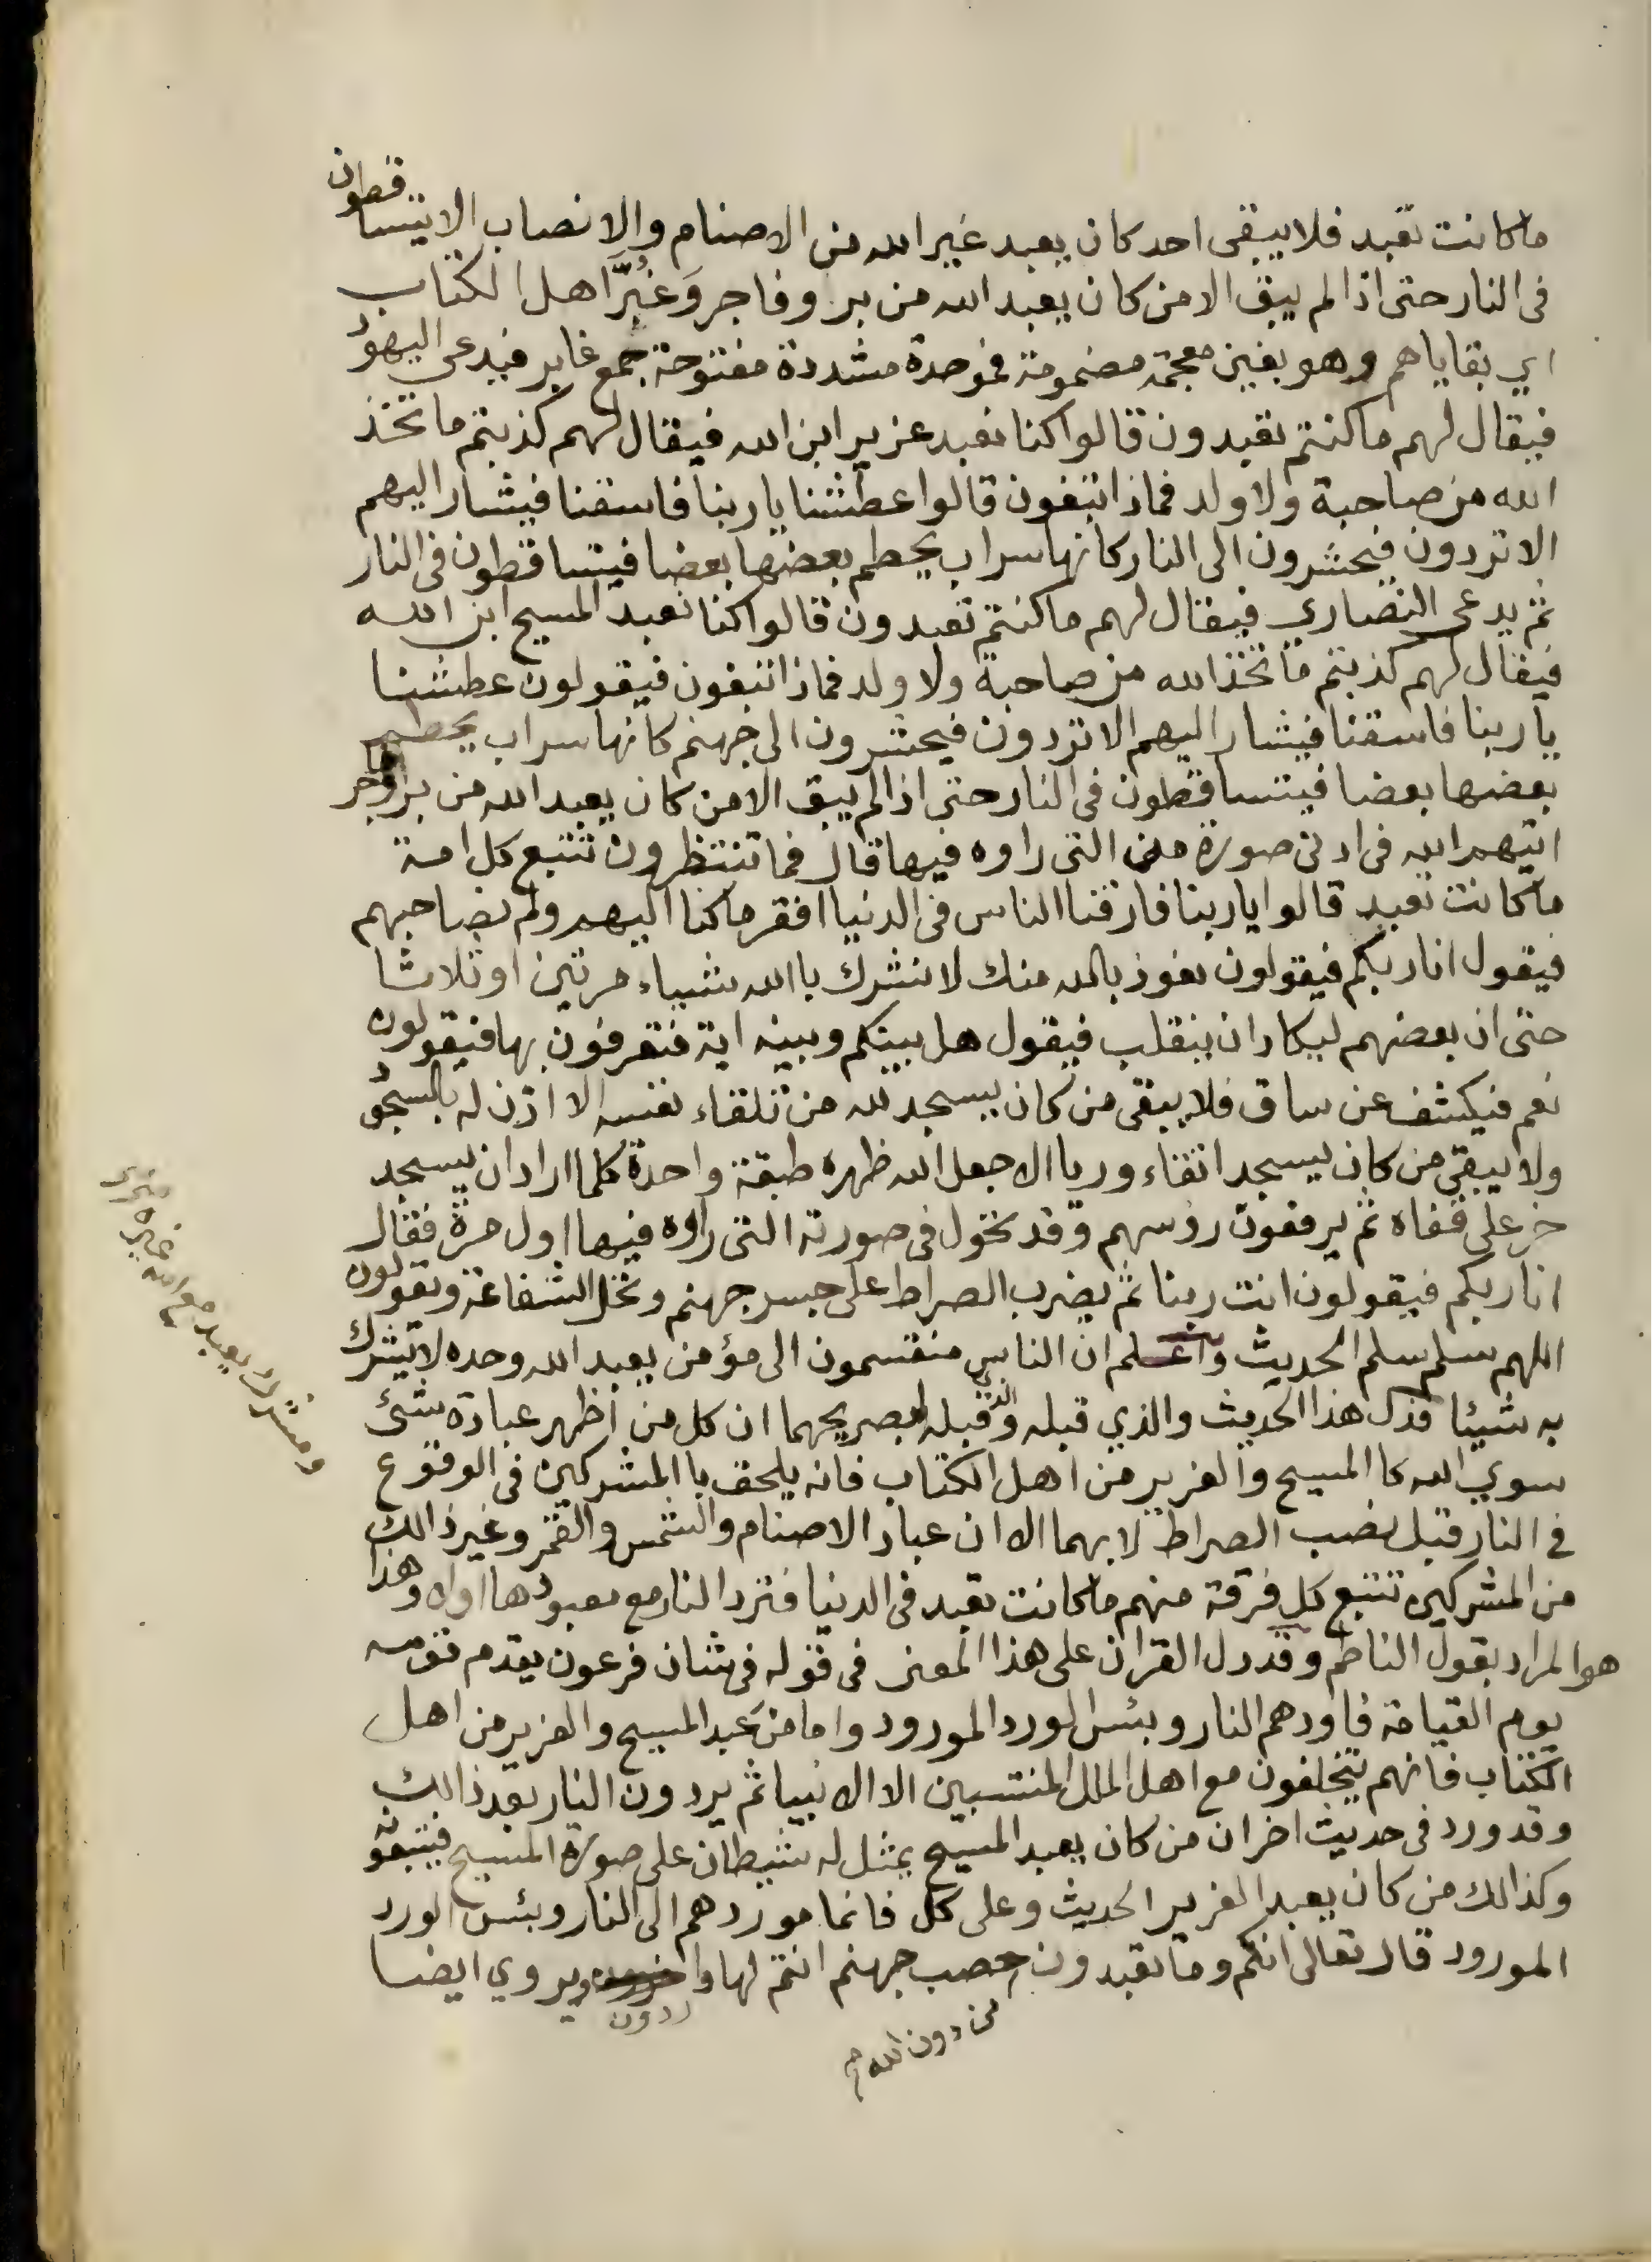 ما كانت تعبد فلا يبقى احد كان يعبد غير الله من الاصنام والانصاب الا يتساقطون
فى النار حتى اذا لم يبق الا من كان يعبد الله من بر وفاجر وَغُبَّر اهل الكتاب
اي بقاياهم وهو بغين معجمة مضمومة فموحدة مشددة مفتوحة جمع غابر فيدعى اليهود
فيقال لهم ما كنتم تعبدون قالوا كنا نعبد عزير ابن الله فيقال لهم كذبتم ما تخذ
الله من صاحبة ولا ولد فماذا تبغون قالوا عطشنا يا ربنا فاسقنا فيشار اليهم
الا تردون فيحشرون الى النار كانها سراب يحطم بعضها بعضا فيتساقطون فى النار
ثم يدعى النصاري فيقال لهم ما كنتم تعبدون قالوا كنا نعبد المسيح ابن الله
فيقال لهم كذبتم ما تخذ الله من صاحبة ولا ولد فماذا تبغون فيقولون عطشنا
يا ربنا فاسقنا فيشار اليهم الا تردون فيحشرون الى جهنم كانها سراب يحطم
بعضها بعضا فيتساقطون فى النار حتى اذا لم يبق الا من كان يعبد الله من بر وفاجر
اتيهم الله فى ادنى صورة من التى راوه فيها قال فما تنتظرون تتبع كل امة
ما كانت تعبد قالوا يا ربنا فارقنا الناس فى الدنيا افقر ما كنا اليهم ولم نصاحبهم
فيقول انا ربكم فيقولون نعوذ بالله منك لا نشرك باالله شيياء مرتين او ثلاثا
حتى ان بعضهم ليكاد ان ينقلب فيقول هل بينكم وبينه اية فتعرفون بها فيقولون
نعم فيكشف عن ساق فلا يبقى من كان يسجد لله من تلقاء نفسه الا اذن له بالسجود
ولا يبقى من كان يسجد اتقاء وريا الا جعل الله ظهره طبقة واحدة كلما اراد ان يسجد
خر على قفاه ثم يرفعون رؤسهم وقد تحول فى صورته التى راوه فيها اول مرة فقال
انا ربكم فيقولون انت ربنا ثم يضرب الصراط على جسر جهنم وتحل الشفاعة ويقولون
اللهم سلم سلم الحديث واعلم ان الناس منقسمون الى مؤمن يعبد الله وحده لا يشرك
به شيئا فدل هذا الحديث والذي قبله والذي قبله بصريحهما ان كل من اظهر عبادة شئ
سوي الله كا المسيح والعزير من اهل الكتاب فانه يلحق با المشركين فى الوقوع
في النار قبل نصب الصراط لا بهما الا ان عباد الاصنام والشمس والقمر وغير ذالك
من المشركين تتبع كل فرقة منهم ما كانت تعبد فى الدنيا فترد النار مع معبودها اولا وهذا
هو المراد بقول الناظم وقد دل القران على هذا المعنى فى قوله فى شان فرعون يقدم قومه
يوم القيامة فاوردهم النار وبئس الورد المورود واما من عبد المسيح والعزير من اهل
الكتاب فانهم يتخلفون مع اهل الملل المنتسبين الا الانبيا ثم يردون النار بعد ذالك
وقد ورد فى حديث اخر ان من كان يعبد المسيح يمثل له شيطان على صورة المسيح فيتبعونه
وكذالك من كان يعبد العزير الحديث وعلى كل فانما موردهم الى النار وبئس الورد
المورود قال تعالى انكم وما تعبدون حصب جهنم انتم لها واردون ويروي ايضا
من دون الله
ومشرك يعبد مع الله غيره